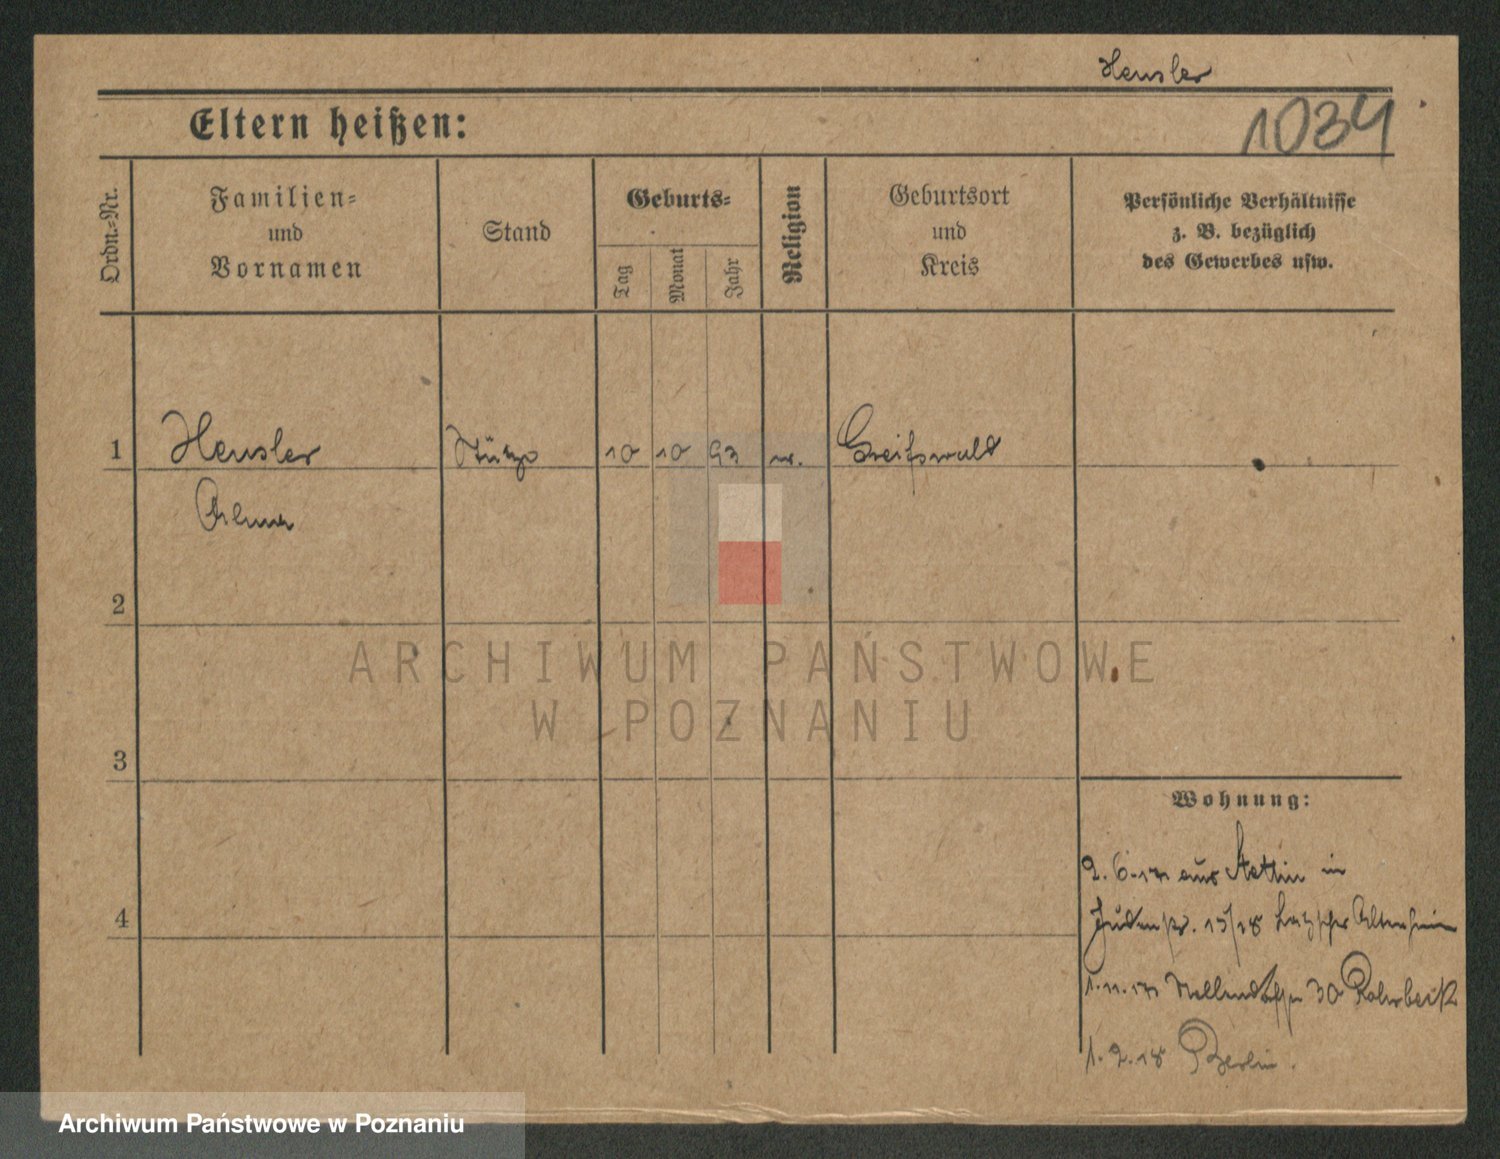 Hensler
1034
Eltern heißen:
Ordn.-Nr.
Familien-
und
Vornamen
Stand
Geburts-
Tag
Monat
Jahr
Religion
Geburtsort
und
Kreis
Persönliche Verhältnisse
z. B. bezüglich
des Gewerbes usw.
1 Hensler Stütze 10 10 93 Greifswald
2
3
ARCHIWUM PAŃSTWOWE
W POZNANIU
Wohnung:
2. 6. 17 aus Stettin in
4
15/18 Altersheim
1. 11. 17 30 Rohrbeck
1. 2. 18 Berlin.
Archiwum Państwowe w Poznaniu